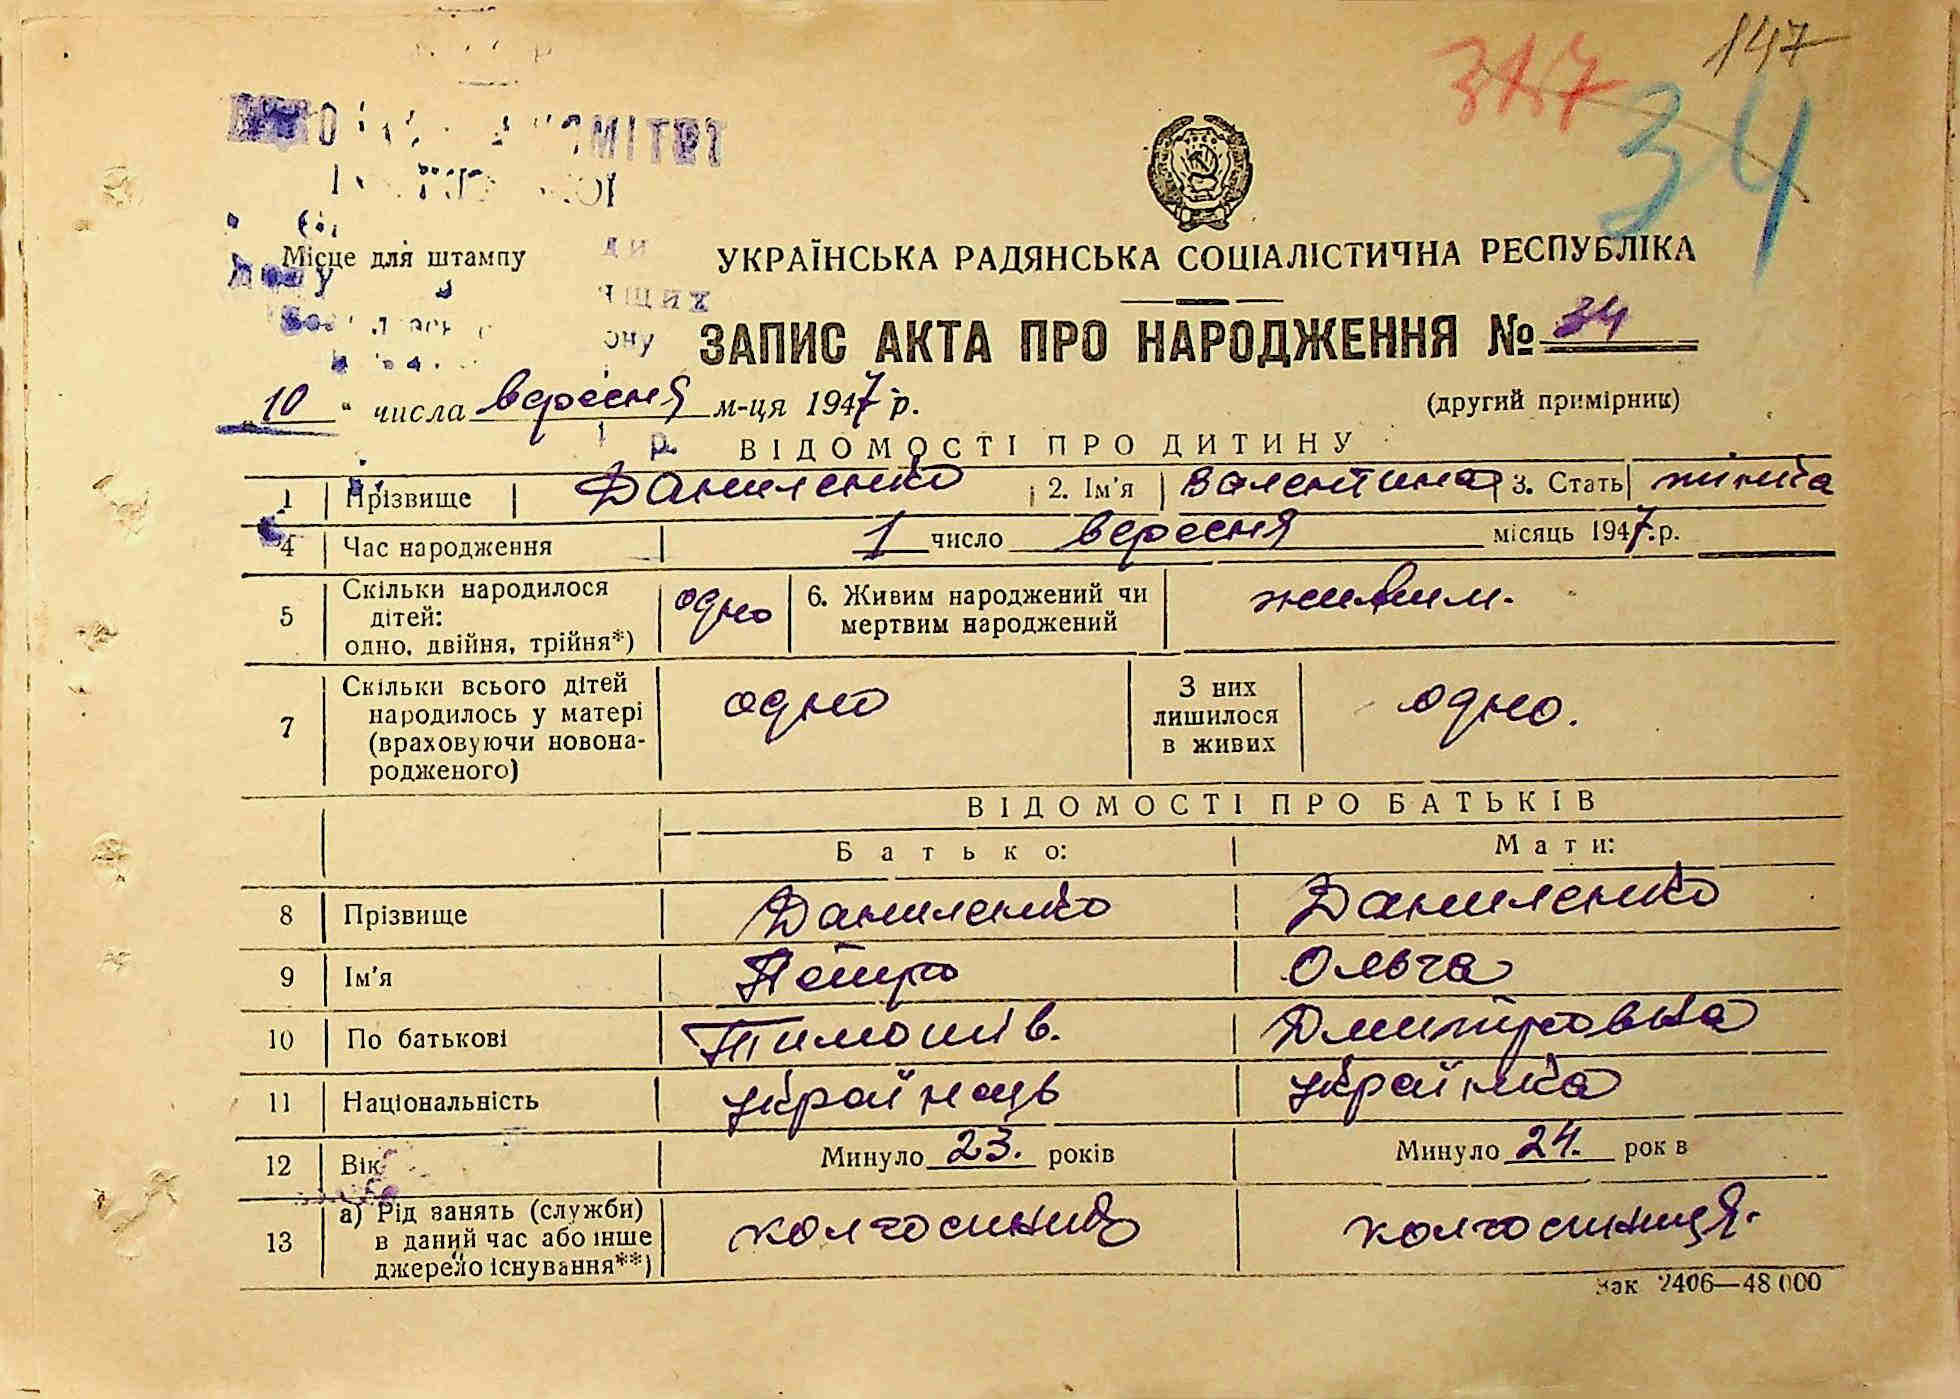 147
317
34
Місце для штампу
УКРАЇНСЬКА РАДЯНСЬКА СОЦІАЛІСТИЧНА РЕСПУБЛІКА
ЗАПИС АКТА ПРО НАРОДЖЕННЯ № 34
„ 10 " числа вересня м-ця 1947 р.
(другий примірник)
ВІДОМОСТІ ПРО ДИТИНУ
1 Прізвище Даниленко 2. Ім'я Валентина 3. Стать жінка
4 Час народження 1 число вересня місяць 1947 р.
5 Скільки народилося дітей: одно, двійня, трійня*) одно 6. Живим народжений чи мертвим народжений живим.
7 Скільки всього дітей народилось у матері (враховуючи новона-родженого) одно З них лишилося в живих одно.
ВІДОМОСТІ ПРО БАТЬКІВ
Батько: Мати:
8 Прізвище Даниленко Даниленко
9 Ім'я Петро Ольга
10 По батькові Тимошів. Дмитровна
11 Національність українець українка
12 Вік Минуло 23. років Минуло 24. рок в
13 а) Рід занять (служби) в даний час або інше джерело існування**) колгоспник колгоспниця.
Зак 2406—48 000